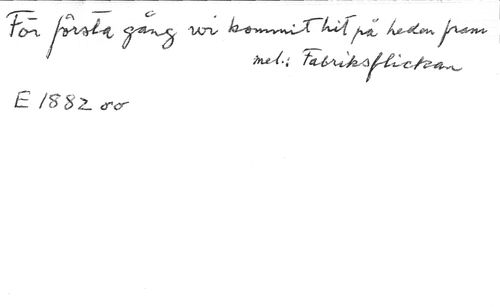 För första gång wi kommit hit på heden fram
mel.: Fabriksflickan
E 1882 oo